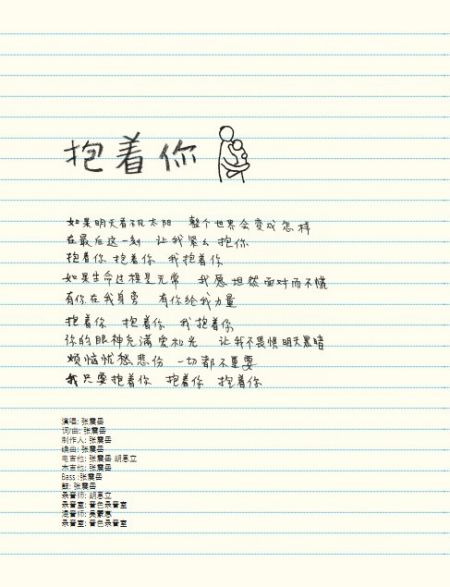 抱着你
如果明天看不见太阳 整个世界会变成怎样
在最后这一刻 让我紧紧抱你
抱着你 抱着你 我抱着你
如果生命过程是无常 我愿坦然面对而不慌
有你在我身旁 有你给我力量
抱着你 抱着你 我抱着你
你的眼神充满爱和光 让我不畏惧明天黑暗
烦恼忧愁悲伤 一切都不重要
我只要抱着你 抱着你 抱着你
演唱: 张震岳
词/曲: 张震岳
制作人: 张震岳
编曲: 张震岳
电吉他: 张震岳 胡恩立
木吉他: 张震岳
Bass :张震岳
鼓: 张震岳
录音师: 胡恩立
录音室: 音色录音室
混音师: 吴蒙惠
录音室: 音色录音室